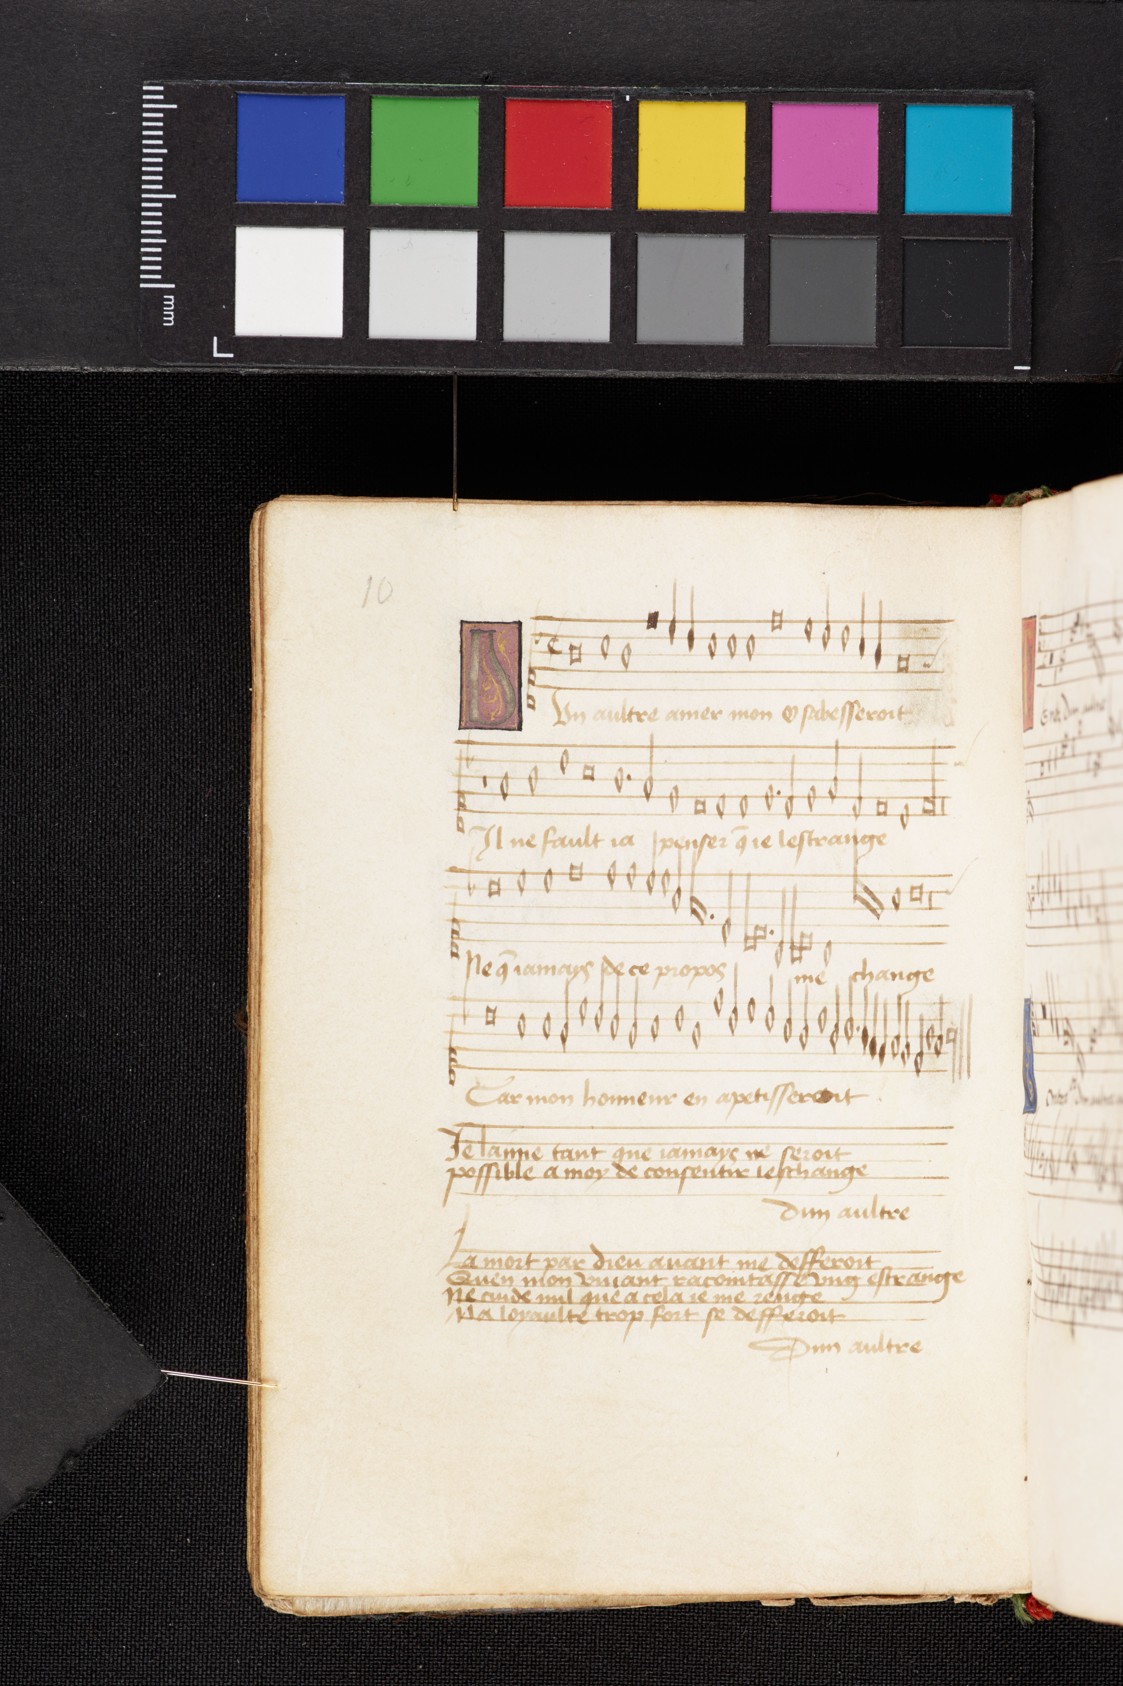 mm
10
D Un aultre amer mon ♡ sabesseroit
Il ne fault ia penser q̄ ie lestrange
Ne q̄ iamays de ce propos me change
Car mon honneur en apetisseroit
Je layme tant que iamays ne seroit
possible a moy de consentir leschange
Dun aultre
La mort par dieu auant me defferoit
Quen mon viuant racointasse vng estrange
Ne cuide nul que a cela ie me renge
Ma loyaulte trop fort se defferoit
Dun aultre